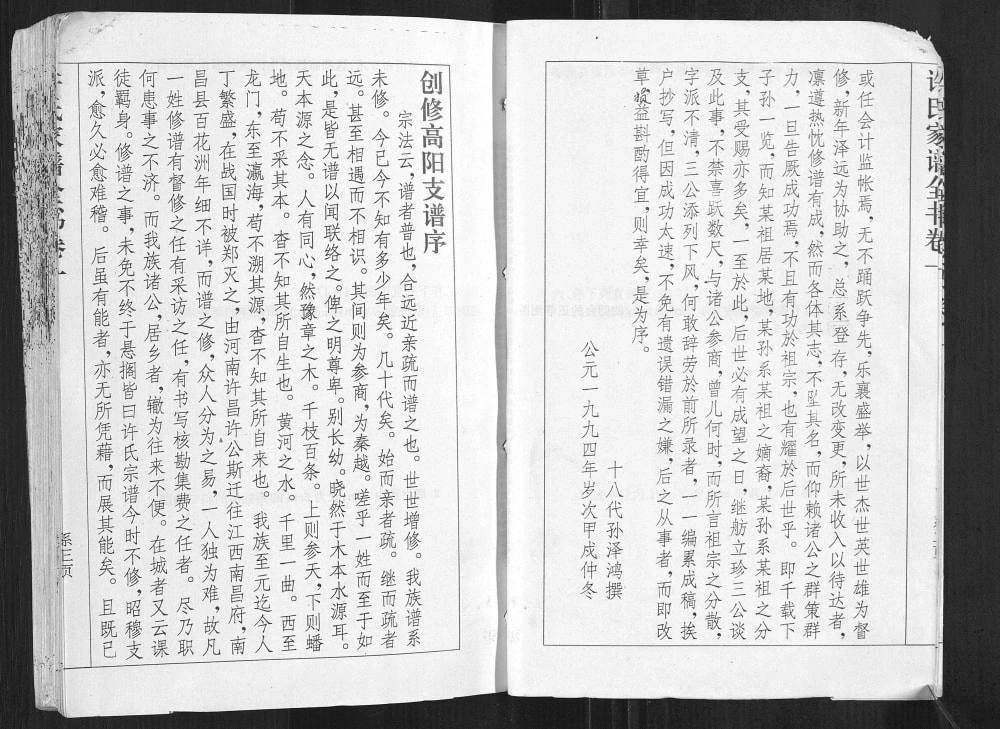 许氏家谱全书卷一
或任会计监帐焉，无不踊跃争先，乐襄盛举，以世杰世英世雄为督
修，新年泽远为协助之，总系登存，无改变更，所未收入以待达者，
凛遵热忱修谱有成，然而各体其志，不坠其名，而仰赖诸公之群策群
力，一旦告厥成功焉，不且有功於祖宗，也有耀於后世乎。即千载下
子孙一览，而知某祖居某地，某孙系某祖之嫡裔，某孙系某祖之分
支，其受赐亦多矣，一至於此，后世必有成望之日，继舫立珍三公谈
及此事，不禁喜跃数尺，与诸公参商，曾儿何时，而所言祖宗之分散，
字派不清，三公添列下风，何敢辞劳於前所录者，一一编累成稿，挨
户抄写，但因成功太速，不免有遗误错漏之嫌，后之从事者，而即改
草损益斟酌得宜，则幸矣，是为序。
十八代孙泽鸿撰
公元一九九四年岁次甲戍仲冬
创修高阳支谱序
宗法云，谱者普也，合远近亲疏而谱之也。世世增修。我族谱系
未修。今已今不知有多少年矣。几十代矣。始而亲者疏。继而疏者
远。甚至相遇而不相识。其间则为参商，为秦越。嗟乎一姓而至于如
此，是皆无谱以闻联络之。俾之明尊卑。别长幼。晓然于木本水源耳。
天本源之念。人有同心，然豫章之木。千枝百条。上则参天，下则蟠
地。苟不采其本。杳不知其所自生也。黄河之水。千里一曲。西至
龙门，东至瀛海，苟不溯其源，杳不知其所自来也。我族至元迄今人
丁繁盛，在战国时被郑灭之，由河南许昌许公斯迁往江西南昌府，南
昌县百花洲年细不详，而谱之修，众人分为之易，一人独为难，故凡
一姓修谱有督修之任有采访之任，有书写核勘集费之任者。尽乃职
何患事之不济。而我族诸公，居乡者，辙为往来不便。在城者又云课
徒羁身。修谱之事，未免不终于悬搁皆曰许氏宗谱今时不修，昭穆支
派，愈久必愈难稽。后虽有能者，亦无所凭藉，而展其能矣。且既已
系三页